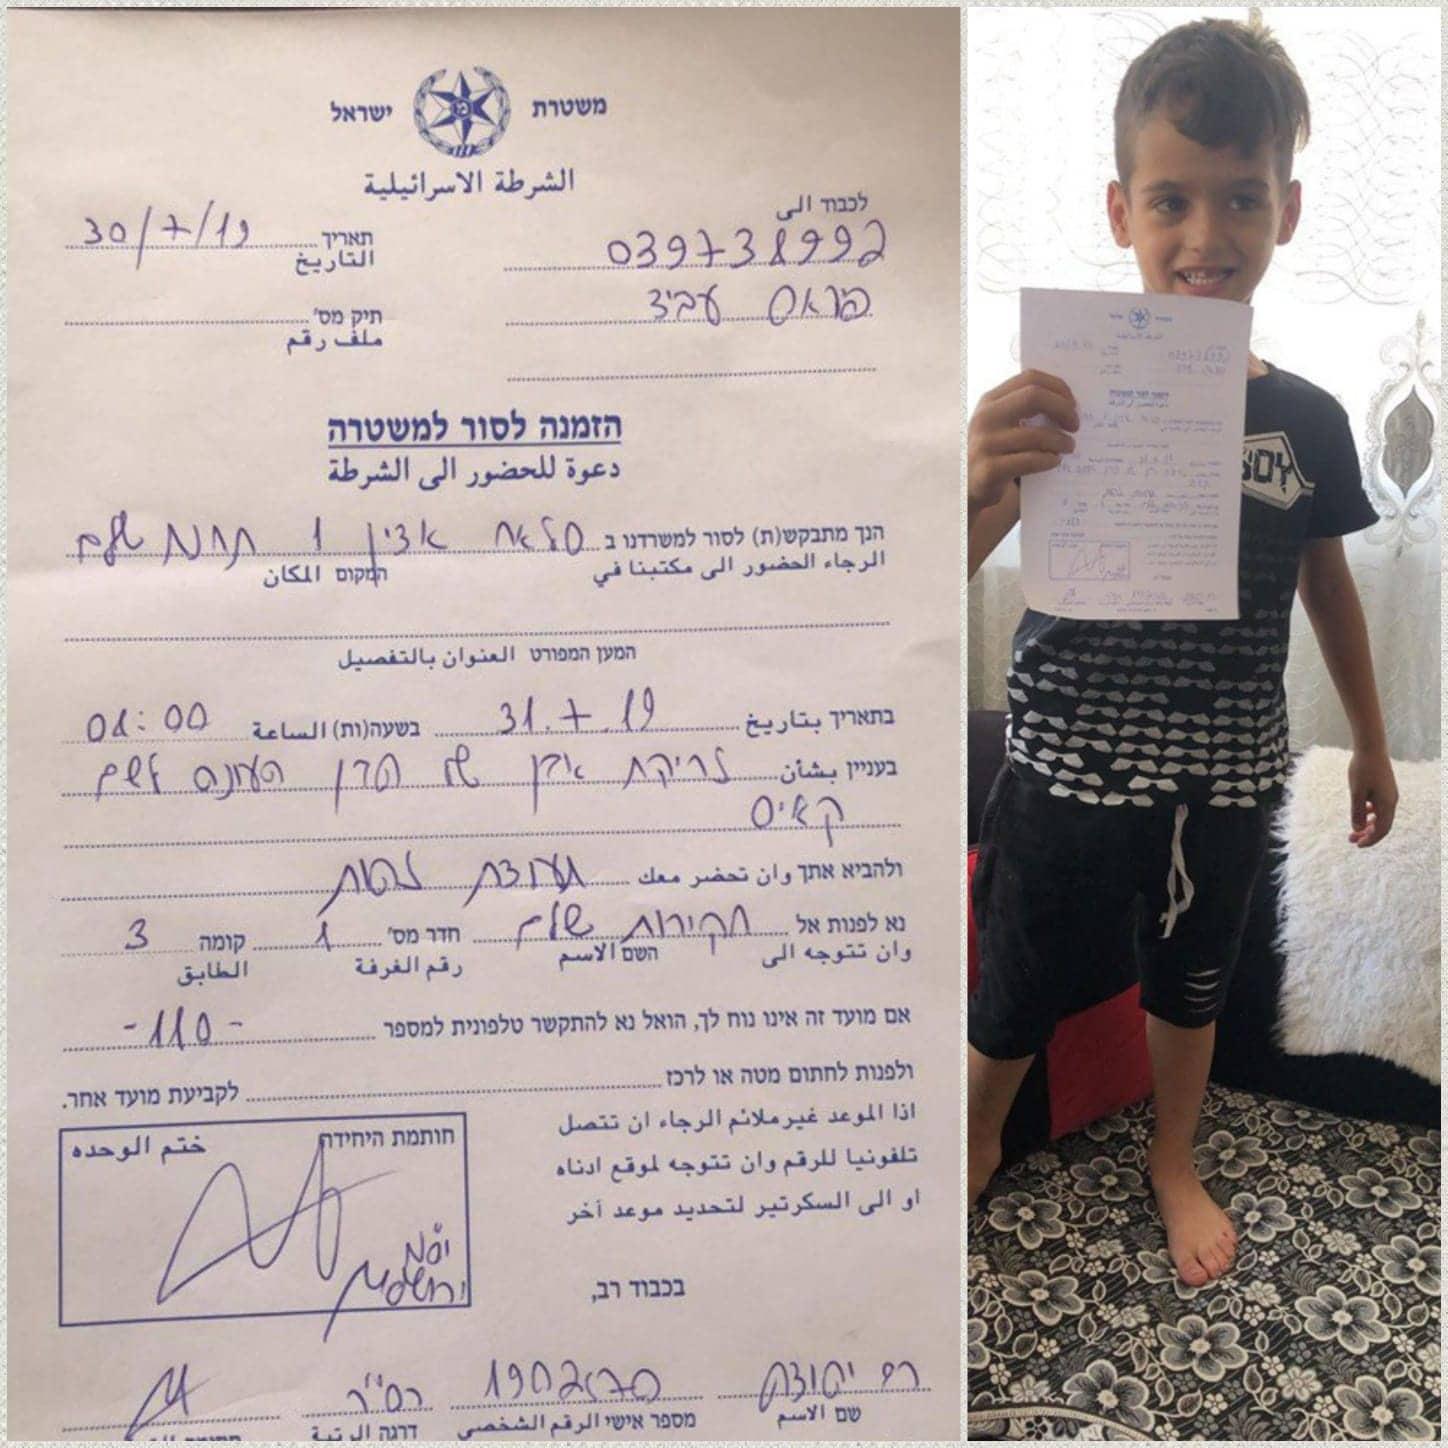 משטרת ישראל
الشرطة الاسرائيلية
לכבוד الى
039738992
פראס עביד
תאריך 30/7/19
التاريخ
תיק מס'
ملف رقم
הזמנה לסור למשטרה
دعوة للحضور الى الشرطة
הנך מתבקש(ת) לסור למשרדנו ב סלאח אדין 1 תחנת שלם
الرجاء الحضور الى مكتبنا في המקום المكان
המען המפורט العنوان بالتفصيل
בתאריך بتاريخ 31.7.19 בשעה(ות) الساعة 08:00
בעניין بشأن לזריקת אבן של הבן
קאיס
ולהביא אתך وان تحضر معك תעודת זהות
נא לפנות אל חקירות שלם חדר מס' 1 קומה 3
وان تتوجه الى השם الاسم رقم الغرفة الطابق
אם מועד זה אינו נוח לך, הואל נא להתקשר טלפונית למספר -110-
ולפנות לחתום מטה או לרכז לקביעת מועד אחר.
اذا الموعد غير ملائم الرجاء ان تتصل
تلفونيا للرقم وان تتوجه لموقع ادناه
او الى السكرتير لتحديد موعد أخر
חותמת היחידה ختم الوحده
בכבוד רב,
רס"ר
שם الاسم מספר אישי الرقم الشخصي דרגה الرتبة
BOY